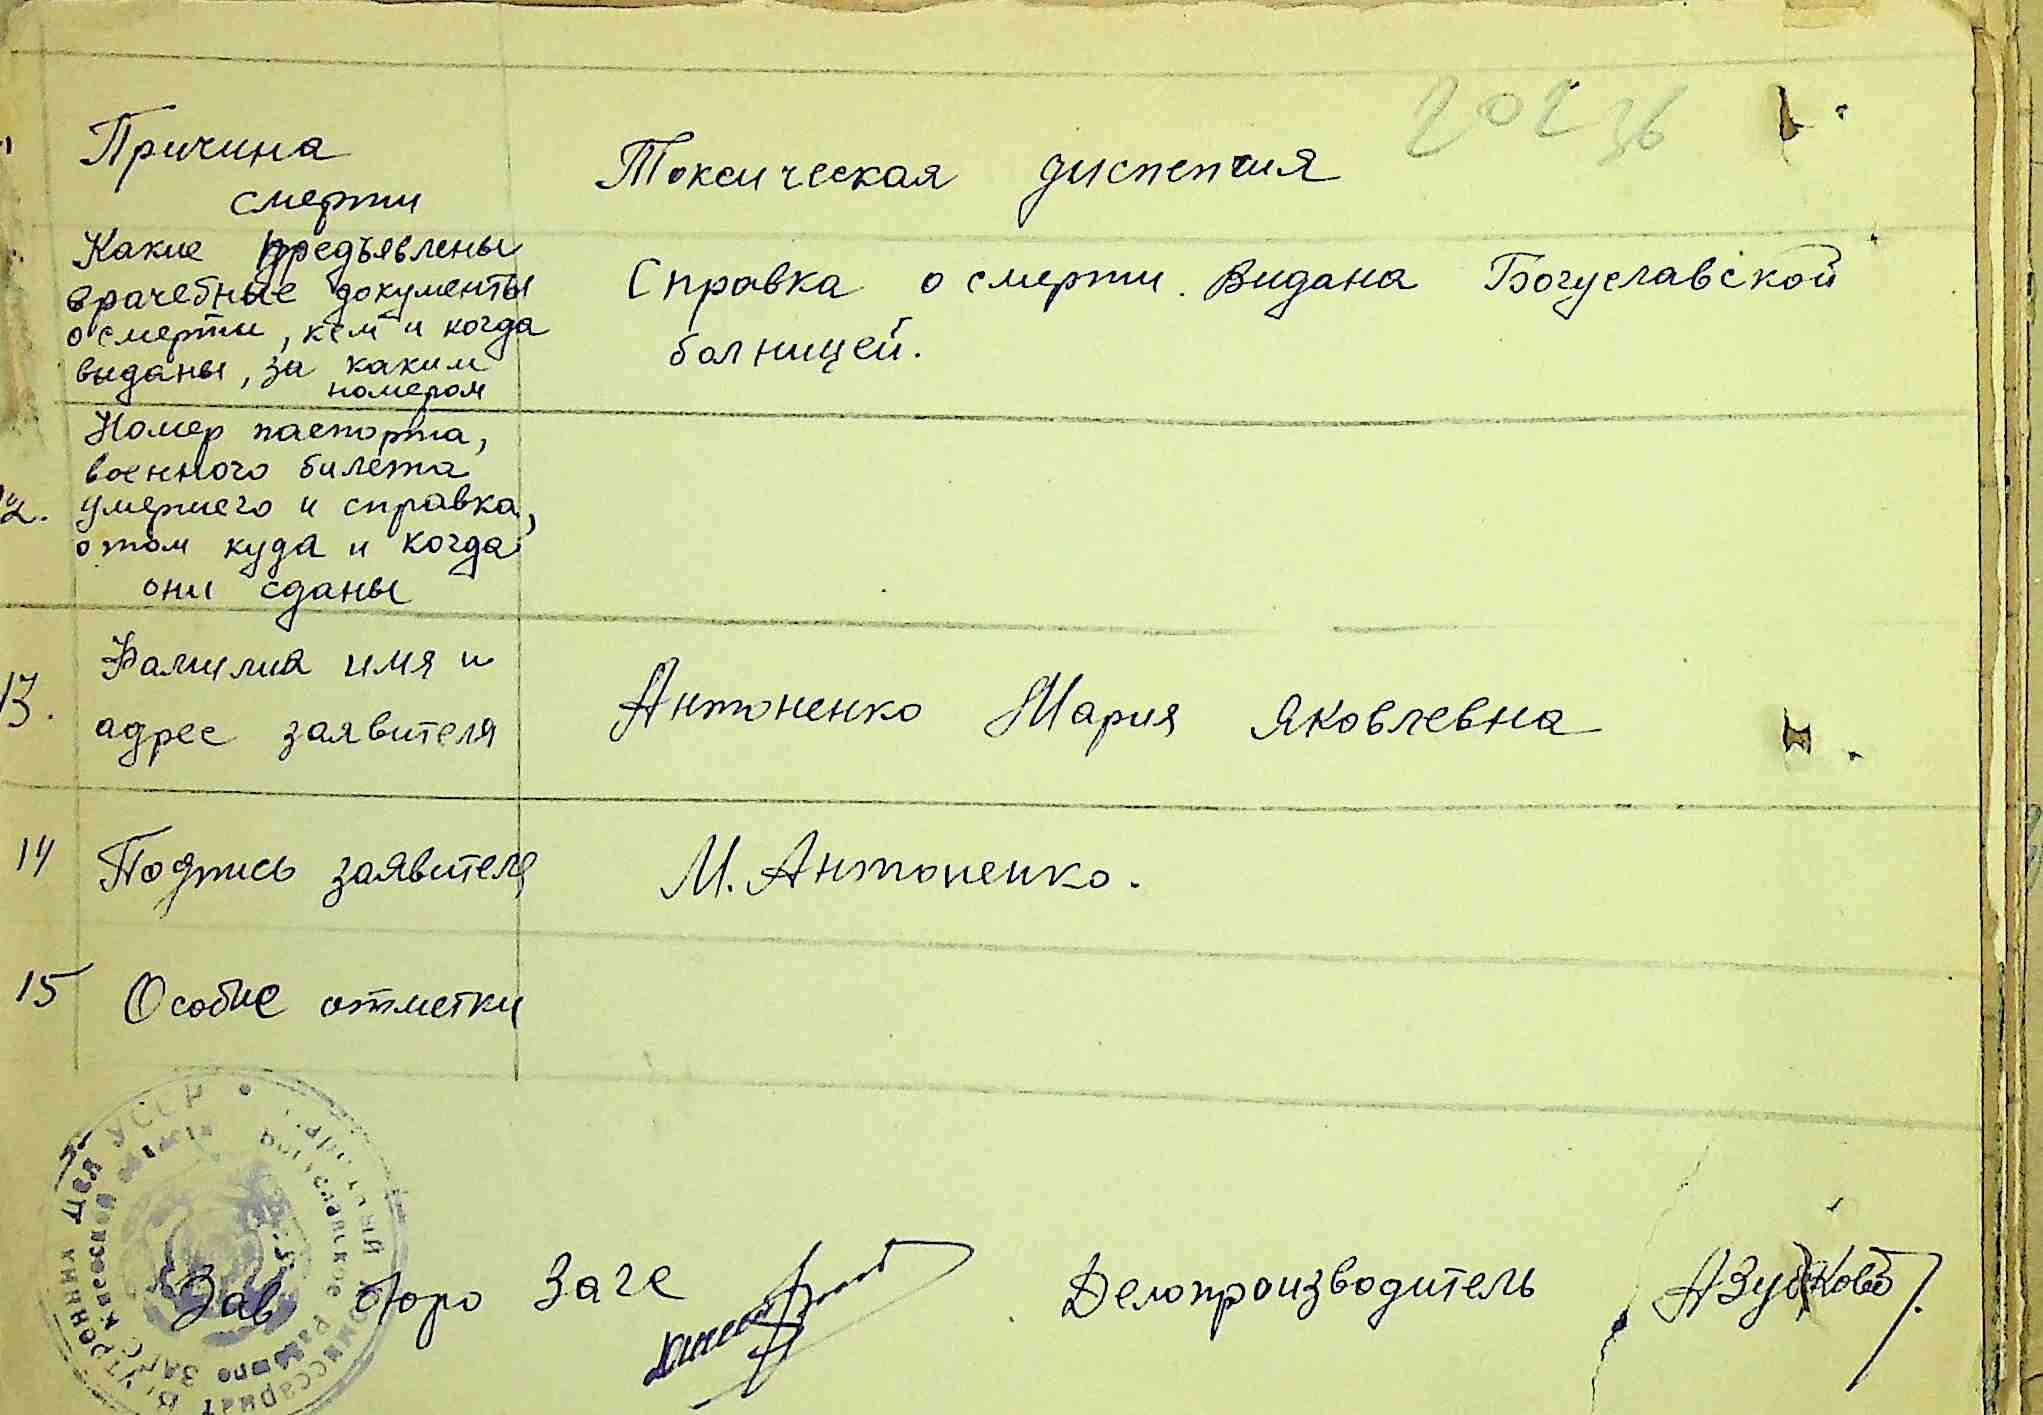 Причина
смерти
Токсическая диспепсия
Какие предъявлены
врачебные документы
о смерти, кем и когда
выданы, за каким
номером
Справка о смерти. Видана Богуславской
болницей.
12. Номер паспорта,
военного билета
умершего и справка,
о том куда и когда
они сданы
13. Фамилиа имя и
адрес заявителя
Антоненко Мария Яковлевна
14 Подпись заявителя
М. Антоненко.
15 Особие отметки
Зав бюро Загс
Делопроизводитель